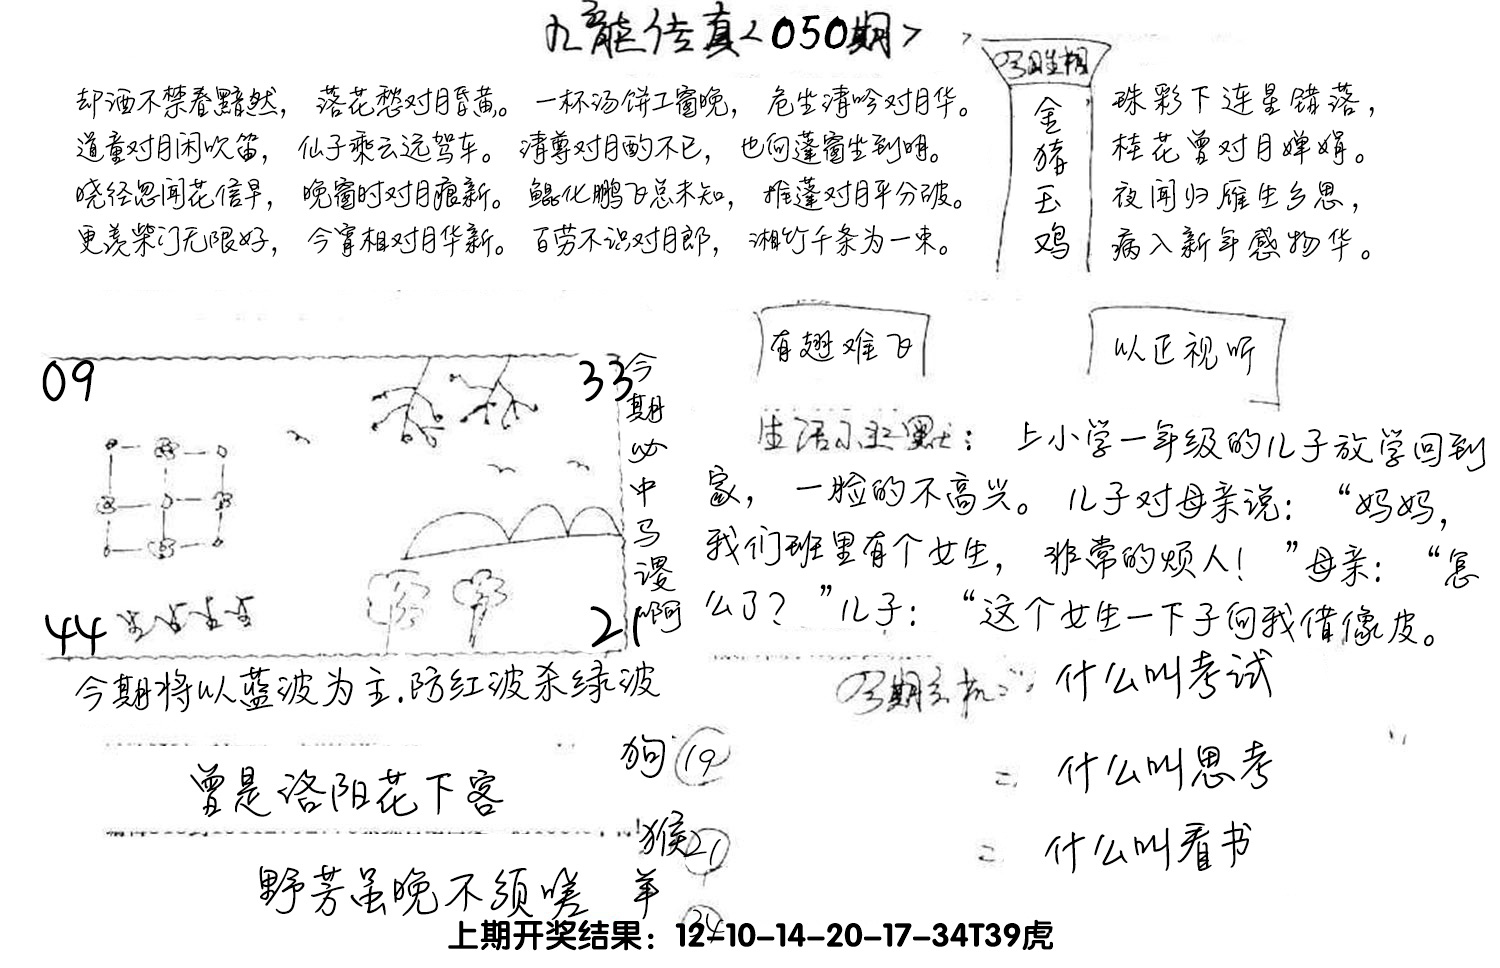 九龙传真<050期>
却酒不禁春黯然，落花愁对月昏黄。一杯汤饼工窗晚，危坐清吟对月华。
道童对月闲吹笛，仙子乘云远驾车。清尊对月酌不已，也向蓬窗坐到明。
晓径忽闻花信早，晚窗时对月痕新。鲲化鹏飞总未知，推蓬对月平分破。
更羡柴门无限好，今宵相对月华新。百劳不识对月郎，湘竹千条为一束。
金猪玉鸡
珠彩下连星错落，
桂花曾对月婵娟。
夜闻归雁生乡思，
病入新年感物华。
有翅难飞
以正视听
09
33
44
21
今期必中马谡啊
今期将以蓝波为主.防红波杀绿波
生活小幽默：上小学一年级的儿子放学回到
家，一脸的不高兴。儿子对母亲说：“妈妈，
我们班里有个女生，非常的烦人！”母亲：“怎
么了？”儿子：“这个女生一下子向我借像皮。
今期玄机：什么叫考试
什么叫思考
什么叫看书
曾是洛阳花下客
野芳虽晚不须嗟
狗 19
猴 21
羊 34
上期开奖结果：12-10-14-20-17-34T39虎